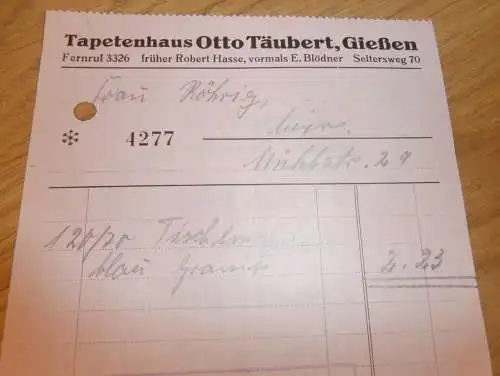 Tapetenhaus Otto Täubert, Gießen
Fernruf 3326 früher Robert Hasse, vormals E. Blödner Seltersweg 70
Frau Röhrig,
* 4277 hier.
29
120/70
blau Granit 2.23